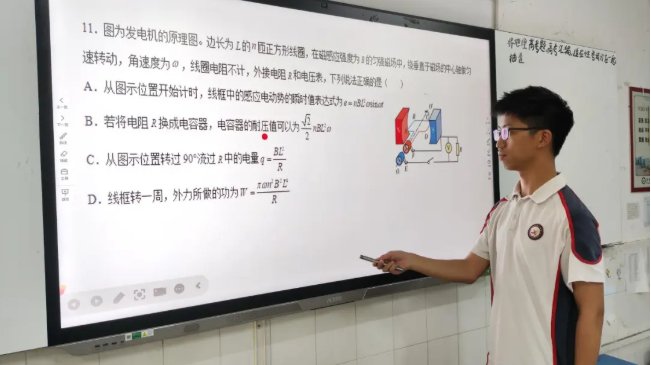 11. 图为发电机的原理图。边长为 L 的 n 匝正方形线圈，在磁感应强度为 B 的匀强磁场中，绕垂直于磁场的中心轴匀
速转动，角速度为 ω，线圈电阻不计，外接电阻 R 和电压表，下列说法正确的是（ ）
A．从图示位置开始计时，线框中的感应电动势的瞬时值表达式为 e = nBL²ωsinωt
B．若将电阻 R 换成电容器，电容器的耐压值可以为 √2/2 nBL²ω
C．从图示位置转过 90°流过 R 中的电量 q = BL²/R
D．线框转一周，外力所做的功为 W = πωn²B²L⁴/R